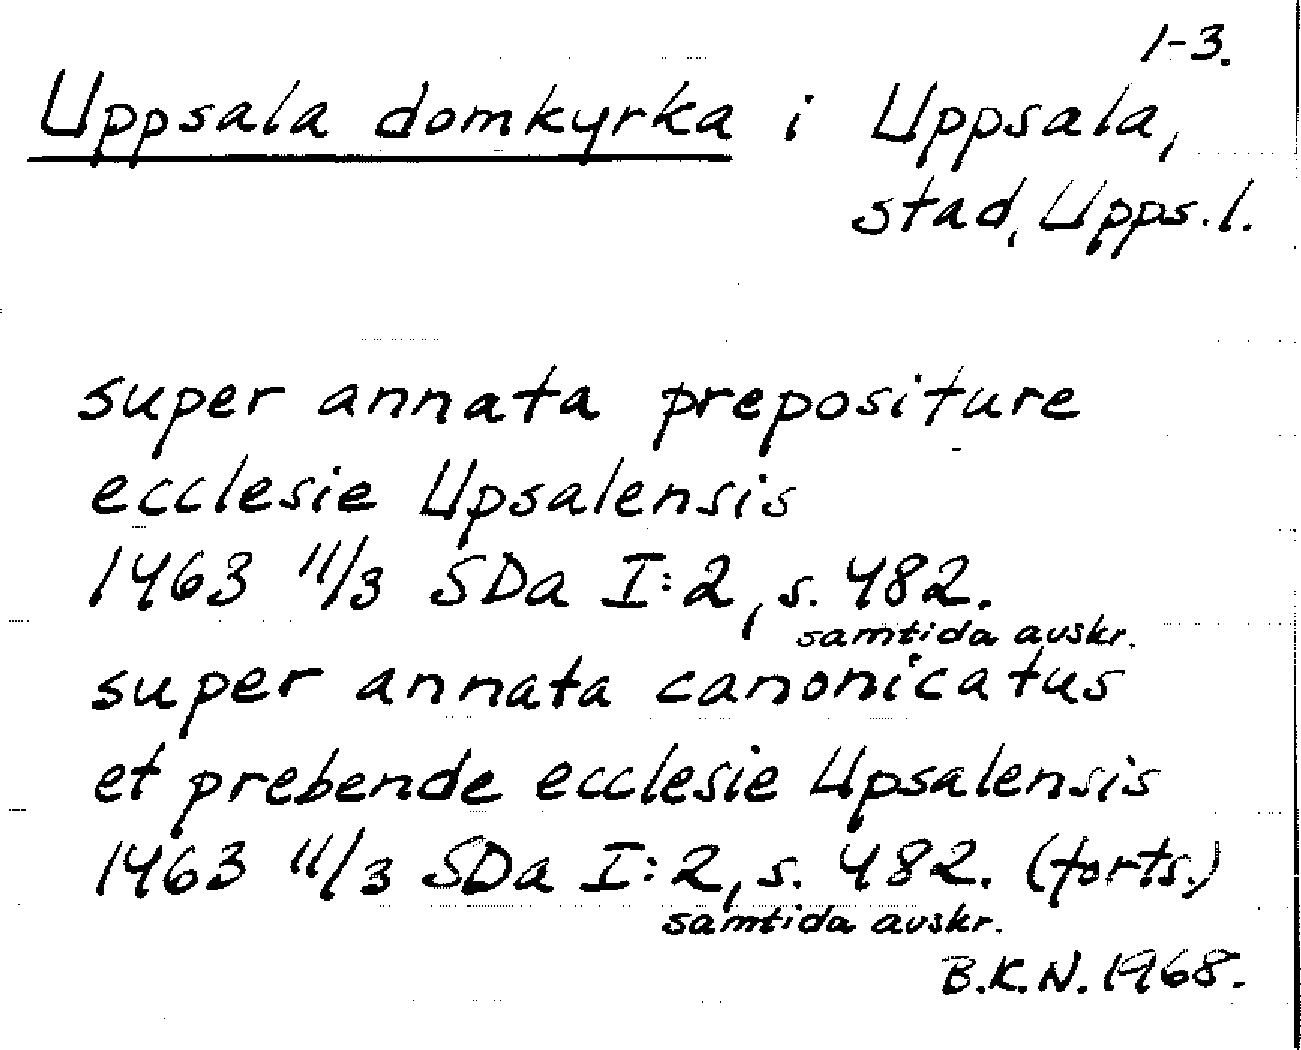 1-3.
Uppsala domkyrka i Uppsala,
stad, Upps.l.
super annata prepositure
ecclesie Upsalensis
1463 11/3 SDa I:2, s. 482.
samtida avskr.
super annata canonicatus
et prebende ecclesie Upsalensis
1463 11/3 SDa I:2, s. 482. (forts.)
samtida avskr.
B.K.N. 1968.